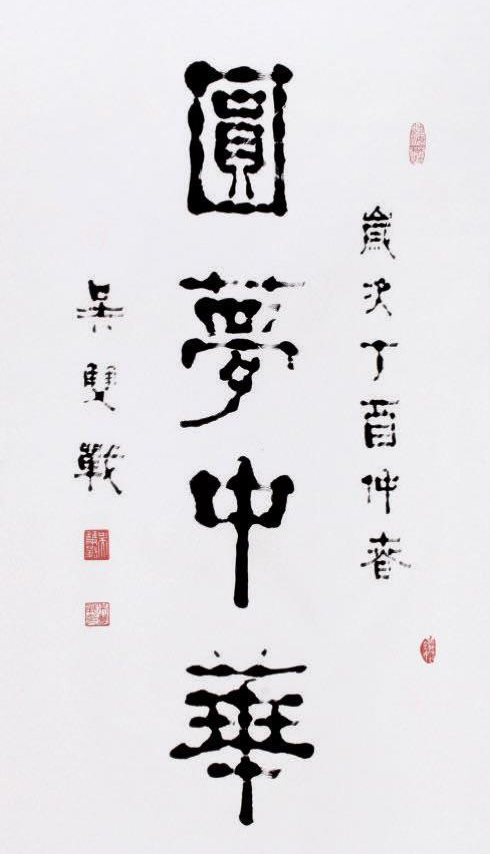 歲次丁酉仲春
圓夢中華
吳雙戰